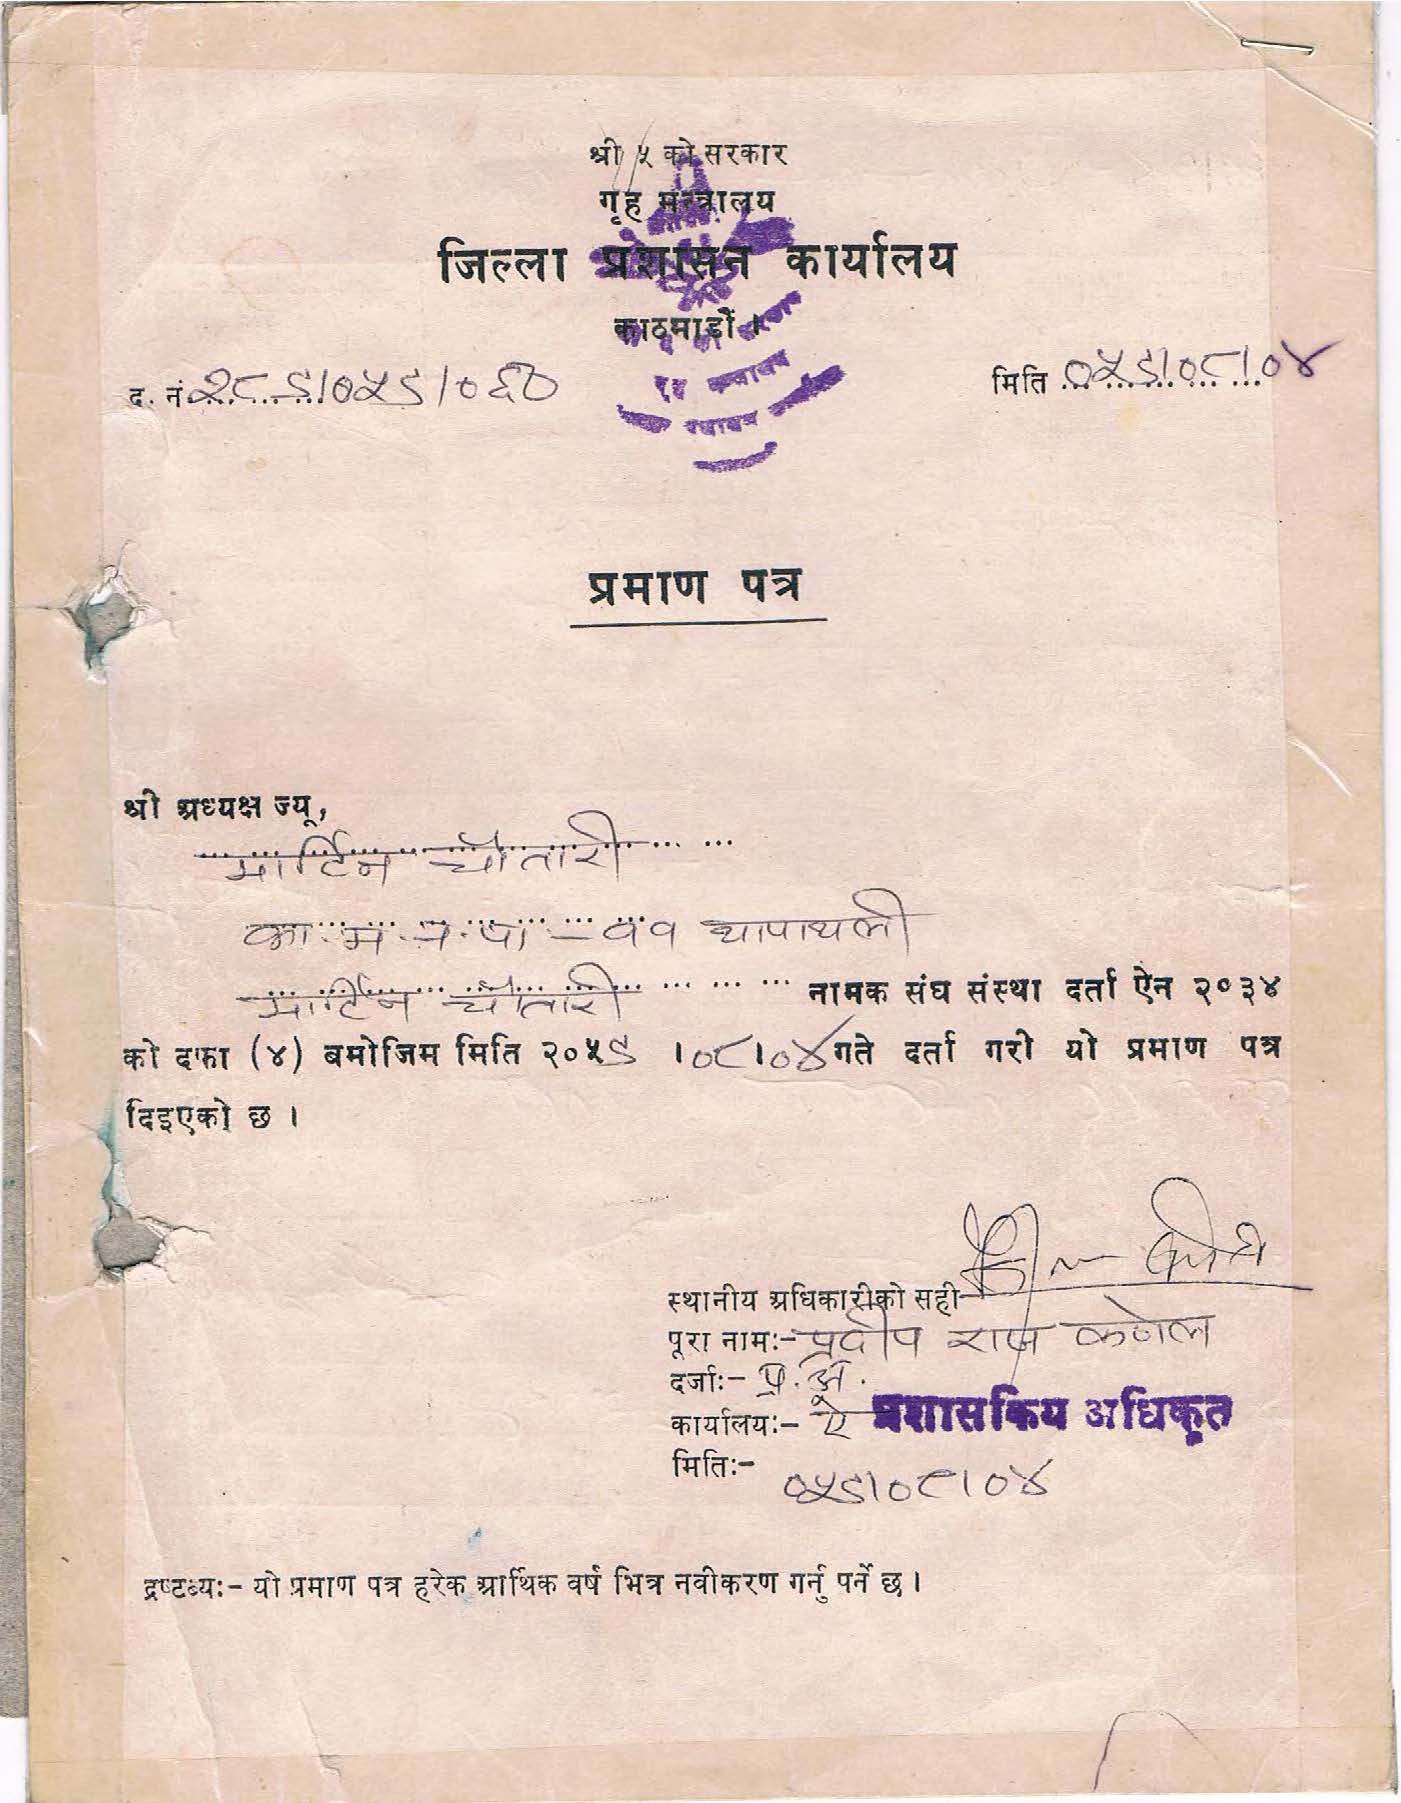 श्री ५ को सरकार
गृह मन्त्रालय
जिल्ला प्रशासन कार्यालय
काठमाडौं ।
द. नं. २८९/०५९/०६०
मिति ०५९/०८/०४
प्रमाण पत्र
श्री अध्यक्ष ज्यू,
मार्टिन चौतारी
का.म.न.पा - ११ थापाथली
मार्टिन चौतारी नामक संघ संस्था दर्ता ऐन २०३४
को दफा (४) बमोजिम मिति २०५९ ।०८।०४ गते दर्ता गरी यो प्रमाण पत्र
दिइएको छ ।
स्थानीय अधिकारीको सही
पूरा नामः- प्रदीप राज कणेल
दर्जाः- प्र.अ.
कार्यालयः- ऐ प्रशासकिय अधिकृत
मितिः-
०५९।०८।०४
द्रष्टव्यः- यो प्रमाण पत्र हरेक आर्थिक वर्ष भित्र नवीकरण गर्नु पर्ने छ ।